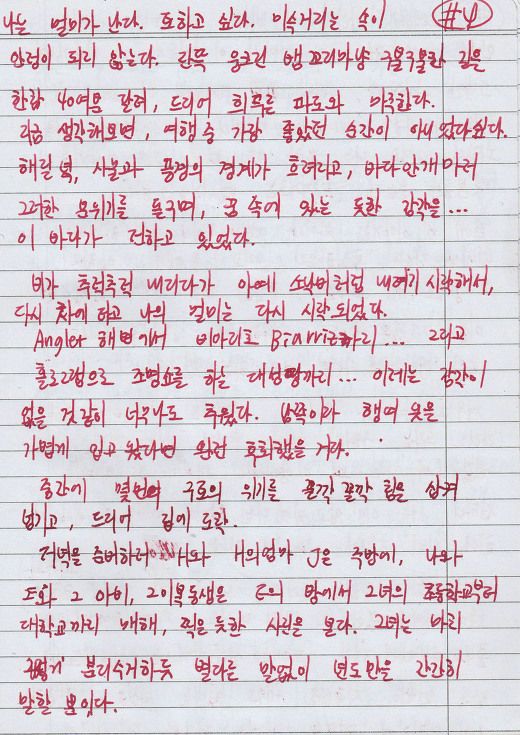 #4
나는 멀미가 난다. 토하고 싶다. 미슥거리는 속이
안정이 되리 않는다. 란뜩 웅크린 뱀 꼬리마냥 구불구불한 길을
한참 40여분 달려, 드디어 회흐를 파도와 마주한다.
지금 생각해보면, 여행 중 가장 좋았던 순간이 아니었다 싶다.
해질 녘, 사물과 풍경의 경계가 흐려리고, 바다 안개마저
그러한 분위기를 돋구며, 꿈 속에 있는 듯한 감각을...
이 바다가 전하고 있었다.
비가 추적추적 내리다가 아예 소낙비처럼 내리기 시작해서,
다시 차에 타고 나의 멀미는 다시 시작되었다.
Anglet 해변에서 비아리츠 Biarritz까리... 그리고
홀로그램으로 조명쇼를 하는 대성당까리... 이레는 감각이
없을 것 같이 너무나도 추웠다. 남쪽이라 행여 옷을
가볍게 입고 왔다면 완전 후회했을 거다.
중간에 몇번의 구토의 위기를 꼴깍 꼴깍 침을 삼켜
넘기고, 드디어 집에 도착.
저녁을 준비하러 H와 H의 엄마 J은 주방에, 나와
E와 그 아비, 그 이복동생은 E의 방에서 그녀의 초등학교부터
대학교까리 매해, 찍은 듯한 사진을 본다. 그녀는 마치
분리수거하듯 별다를 말없이 년도만을 간간히
말할 뿐있다.